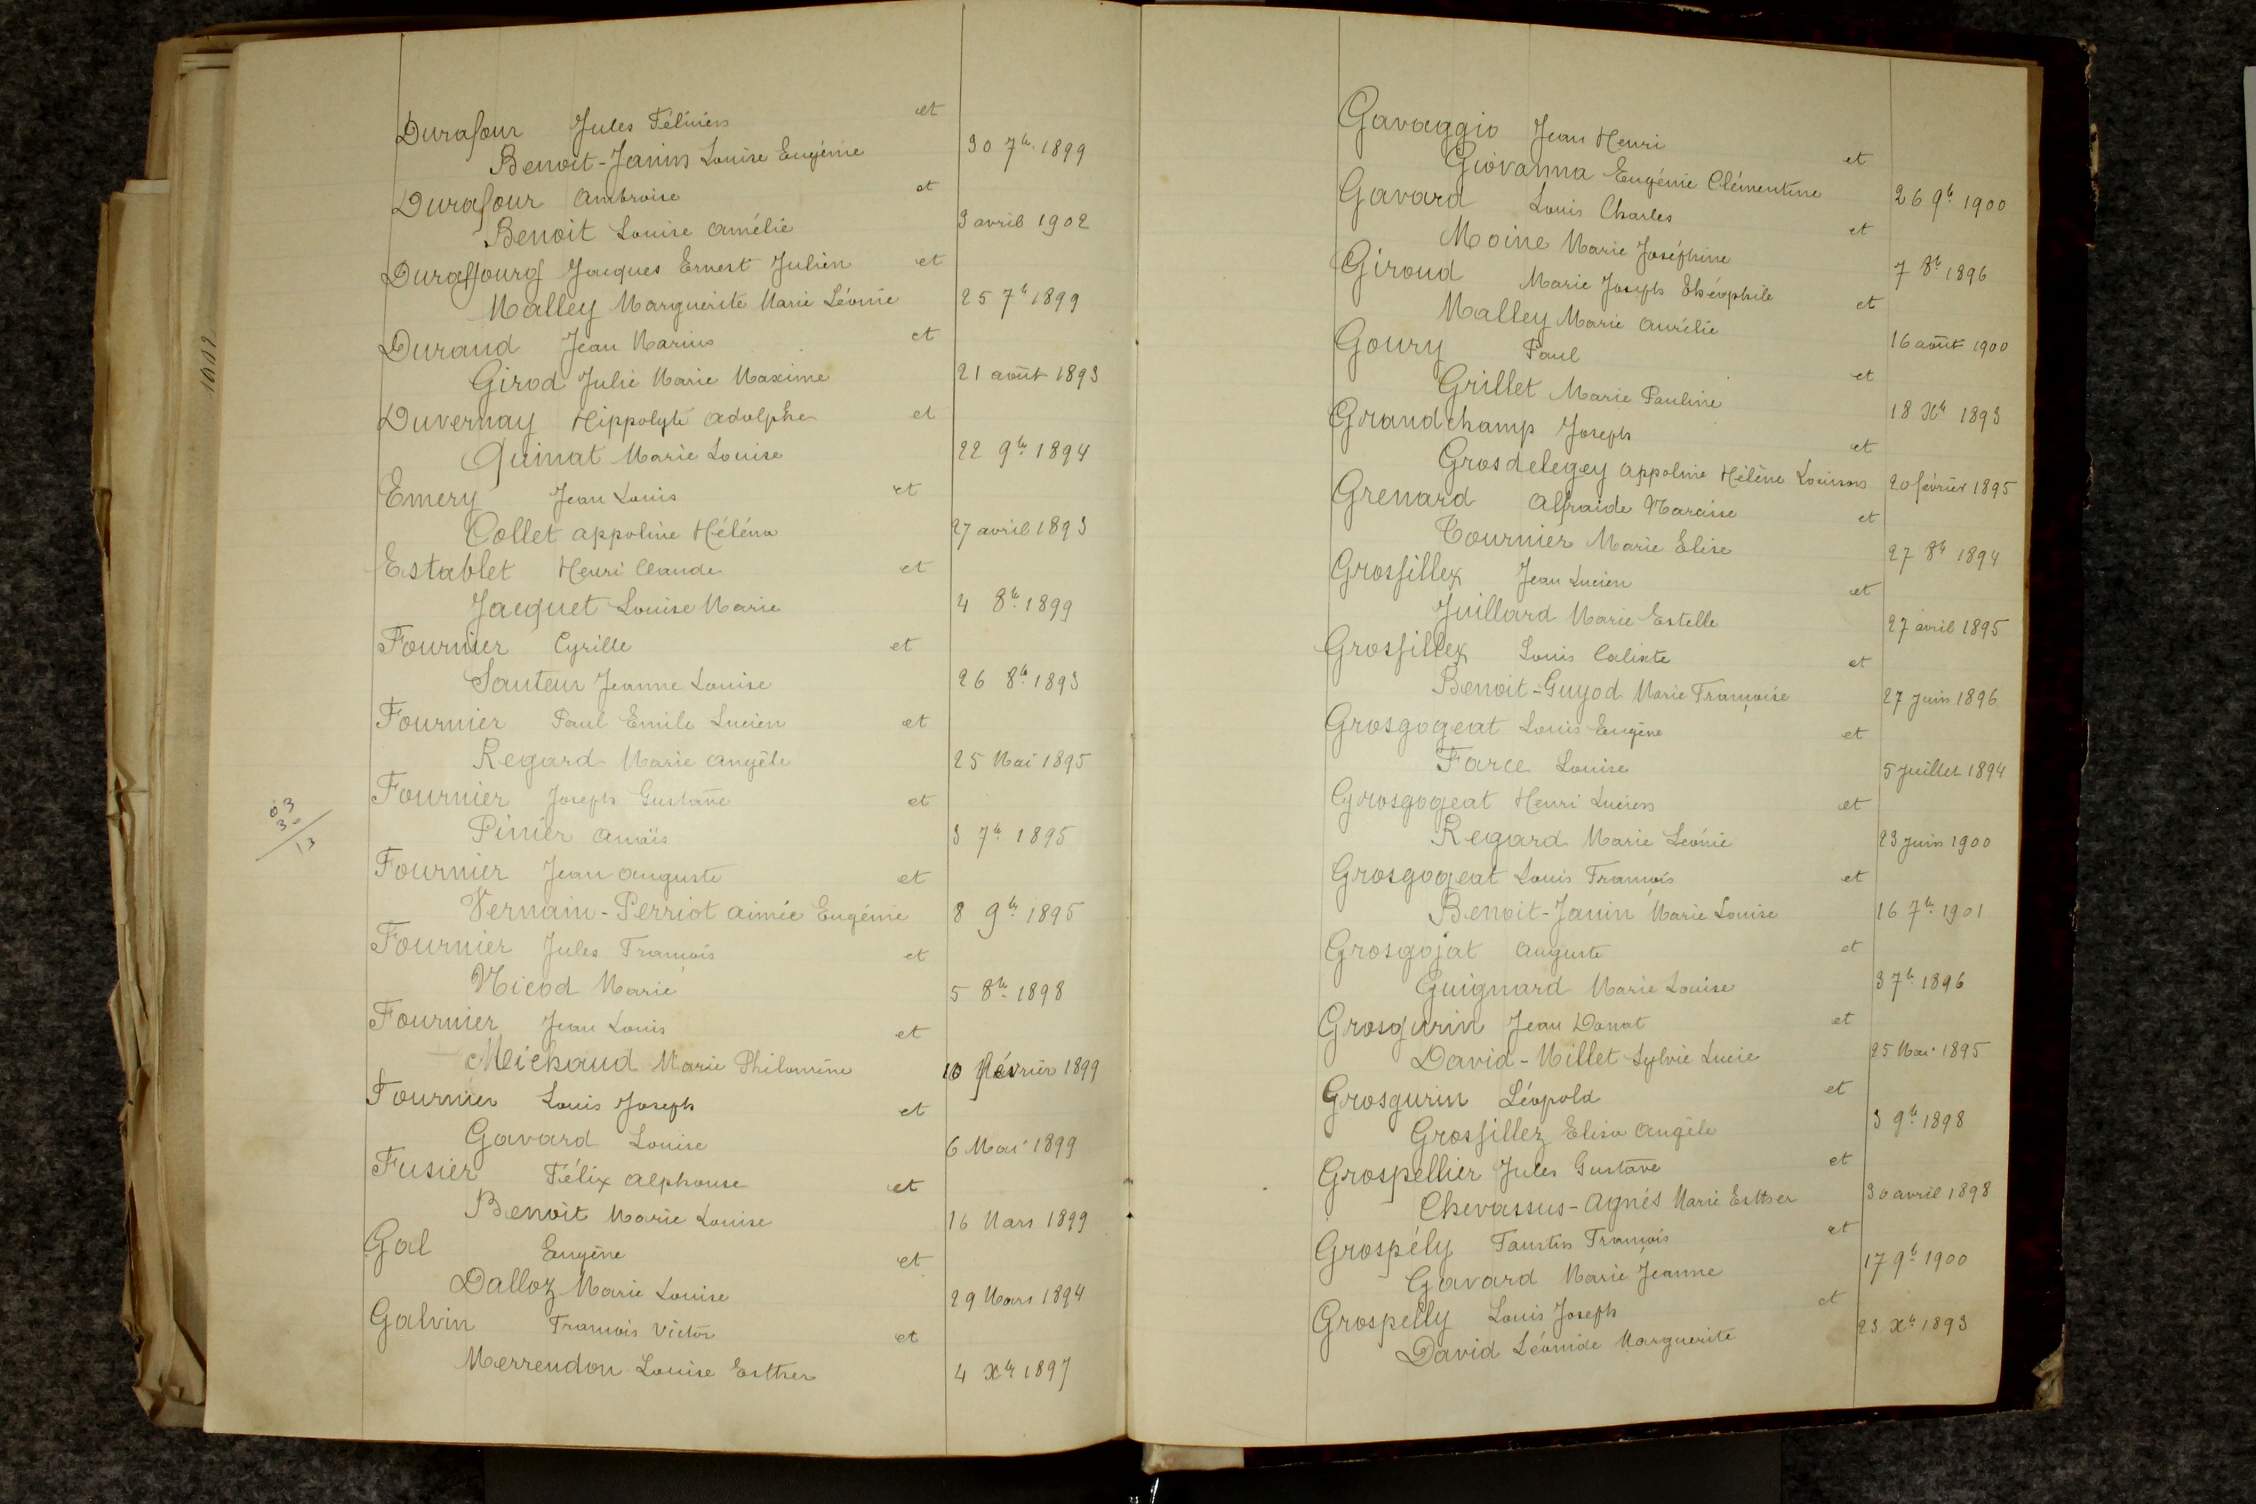 Durafour Jules Félicien et
Benoit-Janin Louise Eugénie 30 7bre 1899
Durafour Ambroise et
Benoit Louise Amélie 3 avril 1902
Duraffourg Jacques Ernest Julien et
Malley Marguerite Marie Léonie 25 7bre 1899
Durand Jean Marius et
Girod Julie Marie Maxime 21 août 1893
Duvernay Hippolyte Adolphe et
Quinat Marie Louise 22 9bre 1894
Emery Jean Louis et
Collet Appoline Héléna 27 avril 1893
Establet Henri Claude et
Jacquet Louise Marie 4 8bre 1899
Fournier Cyrille et
Sauteur Jeanne Louise 26 8bre 1893
Fournier Paul Emile Lucien et
Regard Marie Angèle 25 Mai 1895
Fournier Joseph Gustave et
Pinier Anaïs 3 7bre 1895
Fournier Jean Auguste et
Vernain-Perriot Aimée Eugénie 8 9bre 1895
Fournier Jules François et
Nicod Marie 5 8bre 1898
Fournier Jean Louis et
Michaud Marie Philomène 10 février 1899
Fournier Louis Joseph et
Gavard Louise 6 Mai 1899
Fusier Félix Alphonse et
Benoit Marie Louise 16 Mars 1899
Gal Eugène et
Dalloz Marie Louise 29 Mars 1894
Galvin François Victor et
Merrendon Louise Esther 4 Xbre 1897
Gavaggio Jean Henri et
Giovanna Eugénie Clémentine 26 9bre 1900
Gavard Louis Charles et
Moine Marie Joséphine 7 8bre 1896
Giroud Marie Joseph Théophile et
Malley Marie Aurélie 16 août 1900
Goury Paul et
Grillet Marie Pauline 18 Xbre 1893
Grandchamp Joseph et
Grosdelegey Appoline Hélène Louison 20 février 1895
Grenard Alfraide Narcisse et
Tournier Marie Elise 27 8bre 1894
Grosfillex Jean Lucien et
Juillard Marie Estelle 27 avril 1895
Grosfillex Louis Calixte et
Benoit-Guyod Marie Françoise 27 Juin 1896
Grosgogeat Louis Eugène et
Farce Louise 5 Juillet 1894
Grosgogeat Henri Lucien et
Regard Marie Léonie 23 Juin 1900
Grosgogeat Louis François et
Benoit-Janin Marie Louise 16 7bre 1901
Grosgojat Auguste et
Guignard Marie Louise 3 7bre 1896
Grosgurin Jean Donat et
David-Millet Sylvie Lucie 25 Mai 1895
Grosgurin Léopold et
Grosfillez Elisa Angèle 3 9bre 1898
Grospellier Jules Gustave et
Chevassus-Agnès Marie Esther 30 avril 1898
Grospély Faustin François et
Gavard Marie Jeanne 17 9bre 1900
Grospelly Louis Joseph et
David Léonide Marguerite 23 Xbre 1893